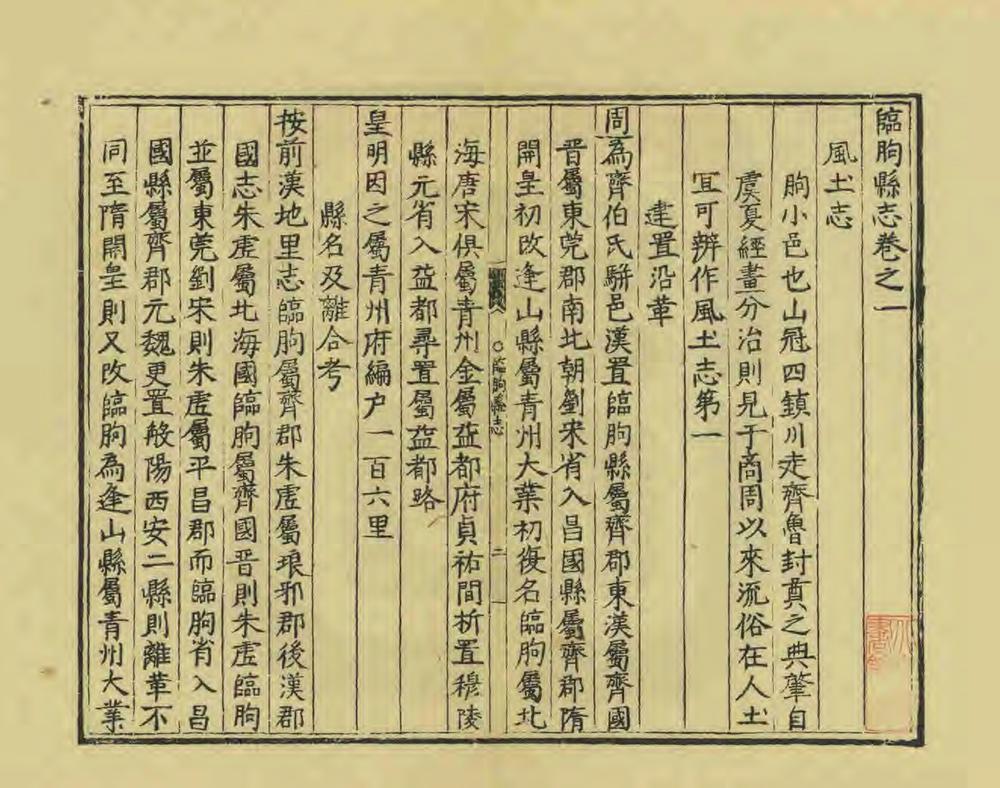 臨朐縣志卷之一
風土志
朐小邑也山冠四鎮川走齊魯封奠之典肇自
虞夏經畫分治則見于商周以來流俗在人土
冝可辨作風土志第一
建置沿革
周為齊伯氏駢邑漢置臨朐縣屬齊郡東漢屬齊國
晋屬東莞郡南北朝劉宋省入昌國縣屬齊郡隋
開皇初改逢山縣屬青州大業初復名臨朐屬北
海唐宋俱屬青州金屬益都府貞祐間析置穆陵
縣元省入益都尋置屬益都路
皇明因之屬青州府編户一百六里
縣名及離合考
按前漢地里志臨朐屬齊郡朱虚屬琅邪郡後漢郡
國志朱虚屬北海國臨朐屬齊國晋則朱虚臨朐
並屬東莞劉宋則朱虚屬平昌郡而臨朐省入昌
國縣屬齊郡元魏更置般陽西安二縣則離革不
同至隋開皇則又改臨朐為逢山縣屬青州大業
臨朐縣志
二